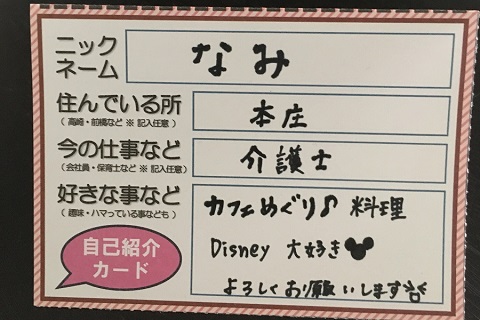 ニック
ネーム
なみ
住んでいる所
(高崎・前橋など ※ 記入任意)
本庄
今の仕事など
(会社員・保育士など ※ 記入任意)
介護士
好きな事など
(趣味・ハマっている事なども)
カフェめぐり♪ 料理
Disney 大好き
よろしくお願いします
自己紹介
カード